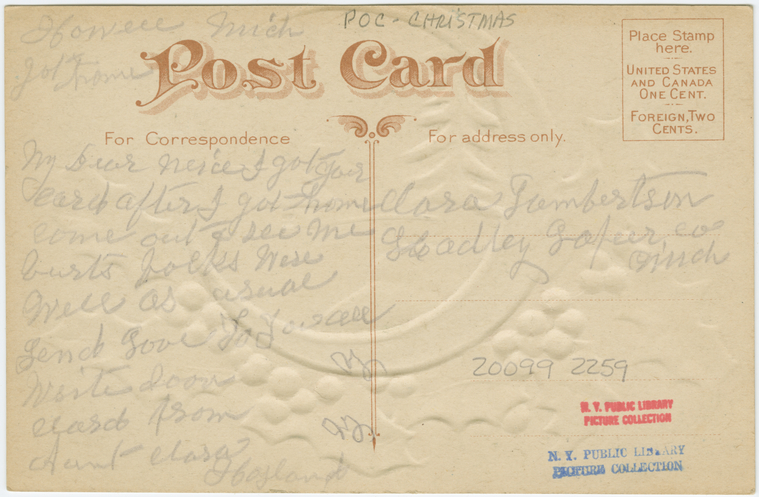 Howell Mich
got home
POC - CHRISTMAS
Post Card
Place Stamp
here.
UNITED STATES
AND CANADA
ONE CENT.
FOREIGN, TWO
CENTS.
For Correspondence
For address only.
My Dear neice I got your
card after I got home
come out & see me
burts folks were
well as usual
Send Love To You all
write soon
card from
Aunt Clara
Clara Lambertson
Co
Mich
20099 2259
N. Y. PUBLIC LIBRARY
PICTURE COLLECTION
N. Y. PUBLIC LIBRARY
PICTURE COLLECTION